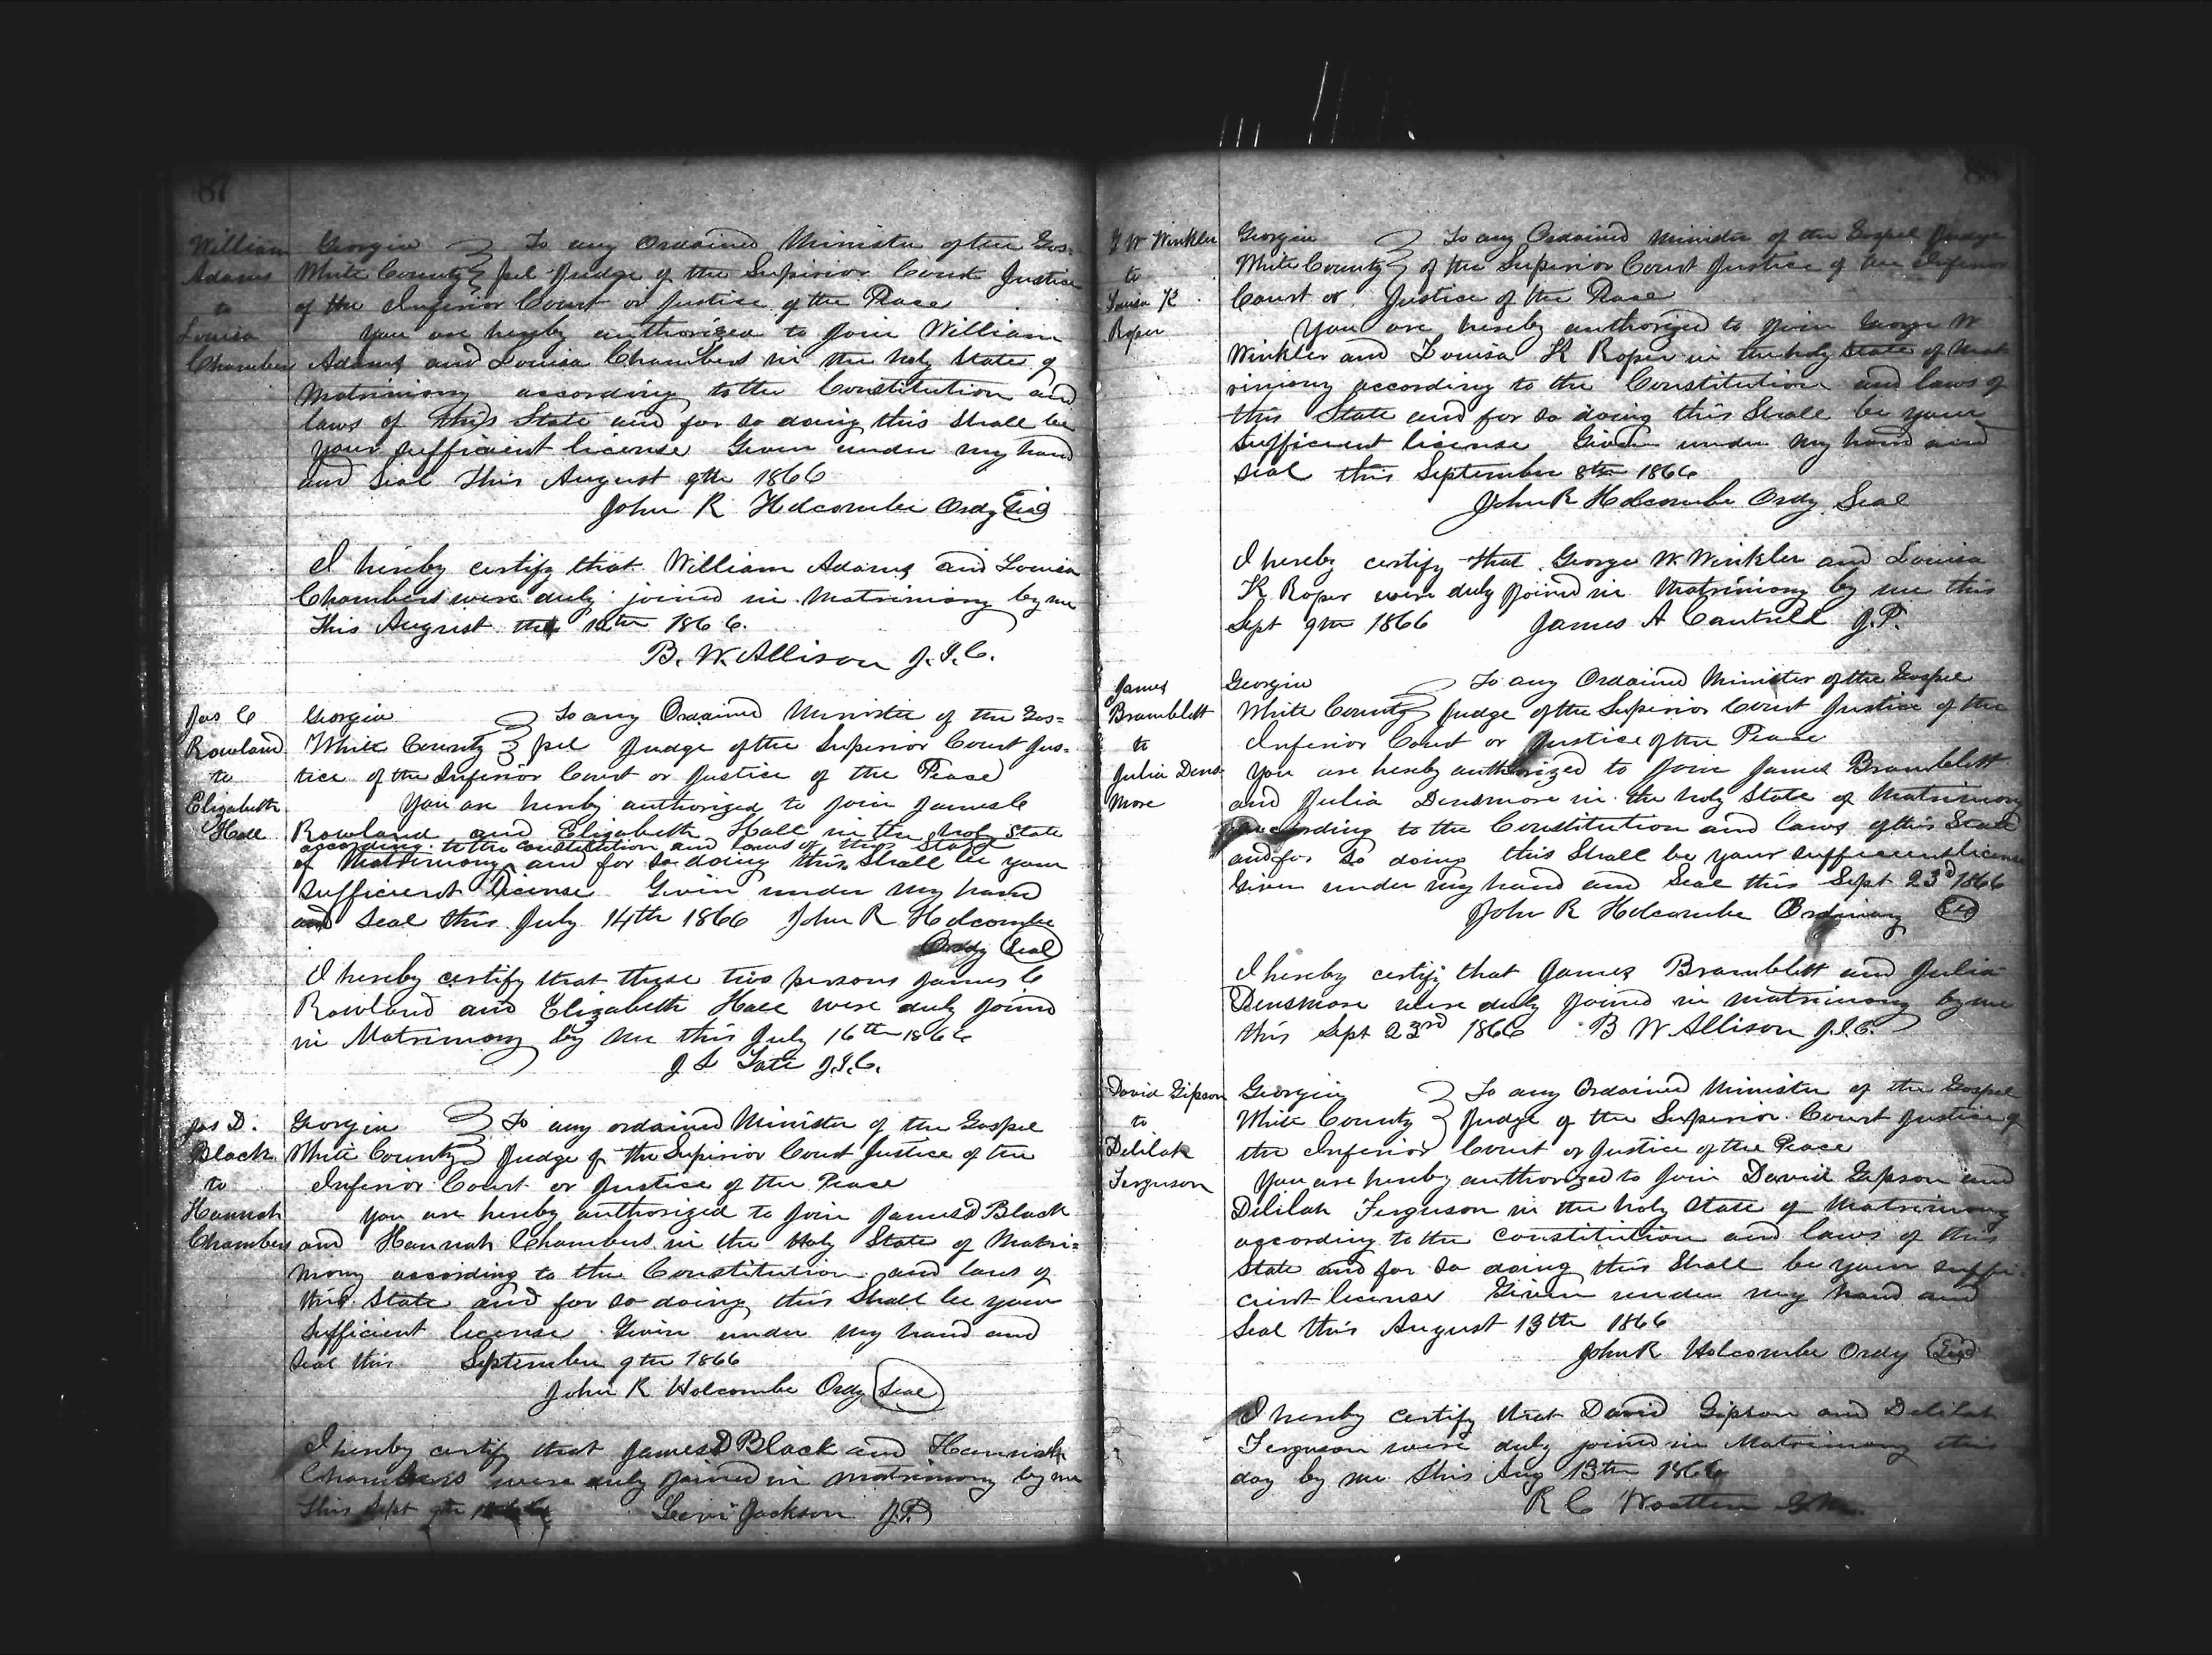 87
William
Adams
to
Louisa
Chambers
Georgia } To any Ordained Minister of the Gos=
White County } pel Judge of the Superior Court Justice
of the Inferior Court or Justice of the Peace
You are hereby authorized to join William
Adams and Louisa Chambers in the holy state of
Matrimony according to the Constitution and
laws of this State and for so doing this shall be
your sufficient license Given under my hand
and Seal This August 9th 1866
John R Holcombe Ordy Seal
I hereby certify that William Adams and Louisa
Chambers were duly joined in Matrimony by me
This August the 12th 1866.
B. W. Allison J.I.C.
Jas C
Rowland
to
Elizabeth
Hall
Georgia } To any Ordained Minister of the Gos=
White County } pel Judge of the Superior Court Jus=
tice of the Inferior Court or Justice of the Peace
You are hereby authorized to join James C
Rowland and Elizabeth Hall in the holy State
according to the constitution and laws of this State
of Matrimony ^ and for so doing this Shall be your
sufficient license Given under my hand
and seal this July 14th 1866 John R Holcombe
Ordy Seal
I hereby certify that these two persons James C
Rowland and Elizabeth Hall were duly joined
in Matrimony by me this July 16th 1866
J L Tate J.I.C.
Jas D.
Black
to
Hannah
Chambers
Georgia } To any ordained Minister of the Gospel
White County } Judge of the Superior Court Justice of the
Inferior Court or Justice of the Peace
You are hereby authorized to join James D Black
and Hannah Chambers in the Holy State of Matri=
mony according to the Constitution and laws of
this State and for so doing this Shall be your
Sufficient license Given under my hand and
seal this September 9th 1866
John R Holcombe Ordy Seal
I hereby certify that James D Black and Hannah
Chambers were duly joined in matrimony by me
This Sept 9th 1866 Levi Jackson J.P.
G W Winkler
to
Louisa K
Roper
Georgia } To any Ordained Minister of the Gospel Judge
White County } of the Superior Court Justice of the Inferior
Court or Justice of the Peace
You are hereby authorized to join George W
Winkler and Louisa K Roper in the holy State of Mat
rimony according to the Constitution and laws of
this State and for so doing this Shall be your
Sufficient license Given under my hand and
seal this September 8th 1866
John R Holcombe Ordy Seal
I hereby certify that George W. Winkler and Louisa
K Roper were duly joined in Matrimony by me this
Sept 9th 1866 James A Cantrell J.P.
James
Bramblett
to
Julia Dens
more
Georgia } To any Ordained Minister of the Gospel
White County } Judge of the Superior Court Justice of the
Inferior Court or Justice of the Peace
You are hereby authorized to join James Bramblett
and Julia Densmore in the holy State of Matrimony
according to the Constitution and laws of this State
and for so doing this Shall be your sufficient license
Given under my hand and Seal this Sept 23d 1866
John R Holcombe Ordinary
I hereby certify that James Bramblett and Julia
Densmore were duly joined in matrimony by me
this Sept 23rd 1866 B W Allison J.I.C.
David Gipson
to
Delilah
Ferguson
Georgia } To any Ordained Minister of the Gospel
White County } Judge of the Superior Court Justice of
the Inferior Court or Justice of the Peace
You are hereby authorized to join David Gipson and
Delilah Ferguson in the holy State of Matrimony
according to the constitution and laws of this
State and for so doing this Shall be your suffi-
cient license Given under my hand and
Seal this August 13th 1866
John R Holcombe Ordy Seal
I hereby certify that David Gipson and Delilah
Ferguson were duly joined in Matrimony this
day by me this Aug 13th 1866
R C Wootten G.M.